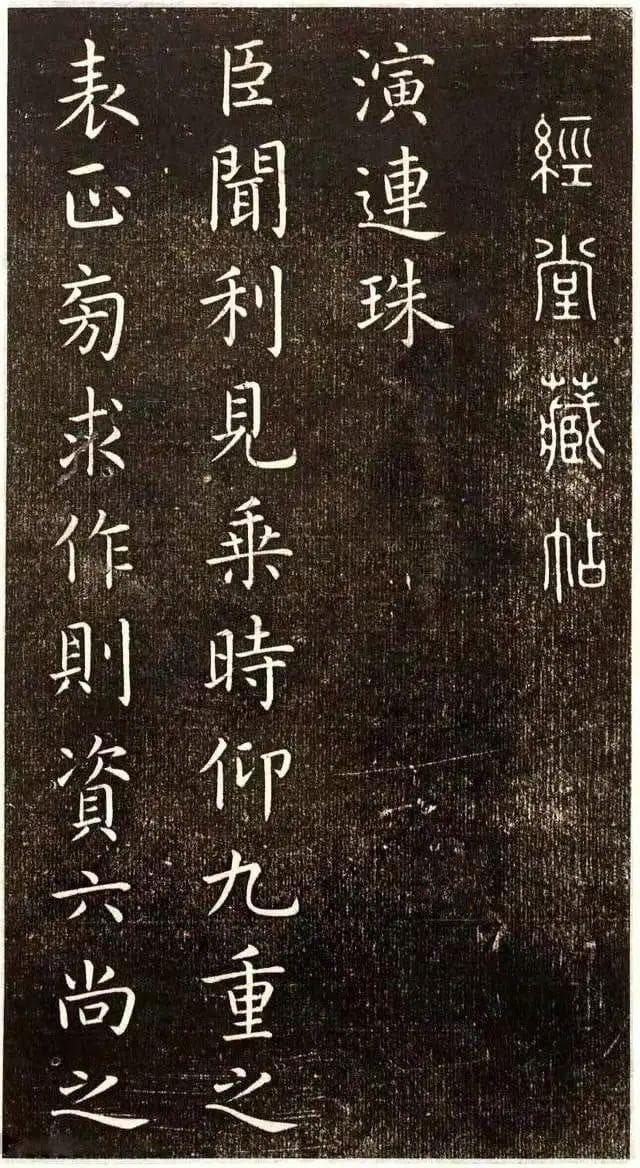 一經堂藏帖
演連珠
臣聞利見乗時仰九重之
表正匇求作則資六尚之